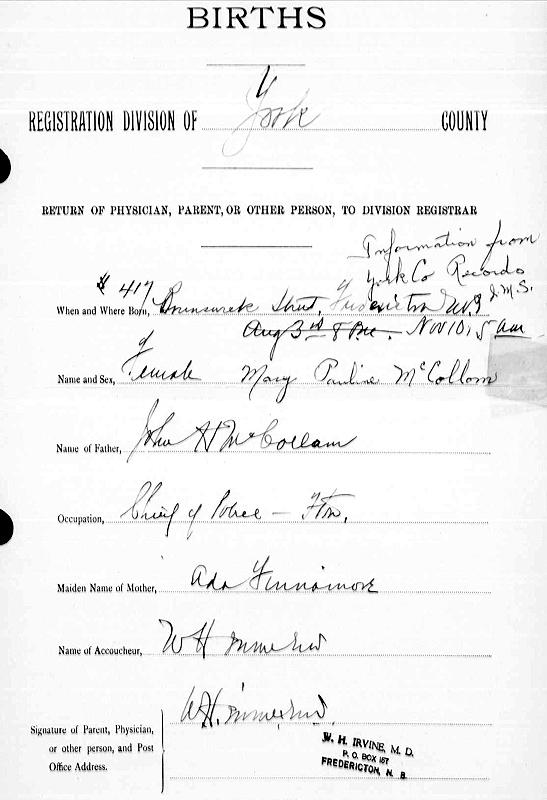 BIRTHS
York
REGISTRATION DIVISION OF COUNTY
RETURN OF PHYSICIAN, PARENT, OR OTHER PERSON, TO DIVISION REGISTRAR
Information from
York Co Records
J.M.S.
417
When and Where Born, Brunswick Street, Fredericton N.B
Aug 3rd 8 Nov 10, 5 am
Name and Sex, Female Mary Pauline McCollom
Name of Father, John H McCollam
Occupation, Chief of Police — Fton,
Maiden Name of Mother, Ada Finnamore
Name of Accoucheur, W H Irvine M D
W.H. Irvine M.D.
Signature of Parent, Physician,
or other person, and Post
Office Address.
W. H. IRVINE, M. D.
P. O. BOX 187
FREDERICTON, N. B.